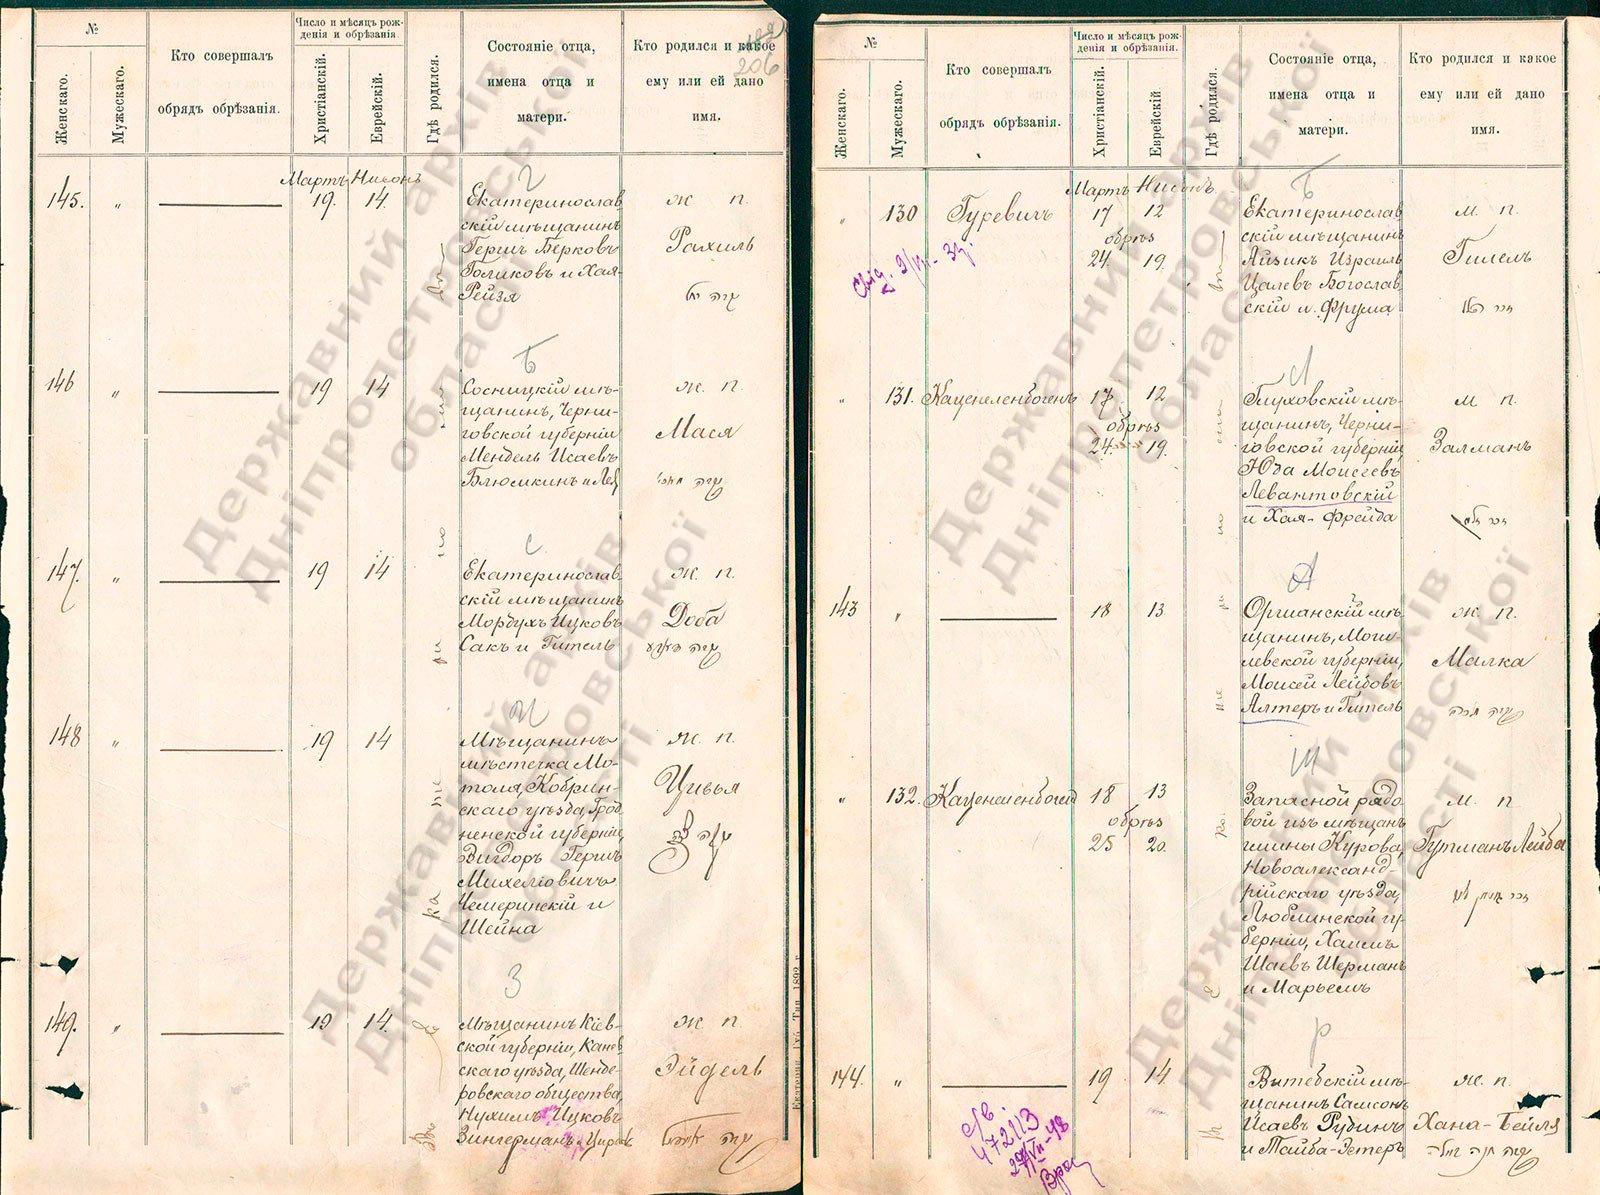 №
Женскаго.
Мужескаго.
Кто совершалъ
обрядъ обрѣзанія.
Число и мѣсяцъ рож-
денія и обрѣзанія
Христіанскій.
Еврейскій.
Гдѣ родился.
Состояніе отца,
имена отца и
матери.
Кто родился и какое
ему или ей дано
имя.
206
Мартъ Нисонъ
Г
145. " 19. 14. Екатеринослав
скій мѣщанинъ
Гершъ Берковъ
Голиковъ и Хая-
Рейзя
ж п.
Рахиль
Б
146 " 19 14 Сосницкій мѣ-
щанинъ, Черни-
говской губерніи
Мендель Исаевъ
Блюмкинъ и Лея
ж. п.
Мася
С
147. " 19 14 Екатеринослав
скій мѣщанинъ
Мордухъ Ицковъ
Сакъ и Гитель
ж. п.
Доба
Ч
148 " 19 14 Мѣщанинъ
мѣстечка Мо-
толя, Кобрин-
скаго уѣзда, Грод
ненской губерніи,
Вигдоръ Гершъ
Михелiовичъ
Чемеринскій и
Шейна
ж. п.
Цивья
З
149. " 19 14. Мѣщанинъ Кіев-
ской губерніи, Канев
скаго уѣзда, Шенде-
ровскаго общества,
Нухимъ Ицковъ
Зингерманъ и
ж п.
Эйдель
Екатерин. Губ. Тип. 1892 г.
№
Женскаго.
Мужескаго.
Кто совершалъ
обрядъ обрѣзанія.
Число и мѣсяцъ рож-
денія и обрѣзанія.
Христіанскій.
Еврейскій
Гдѣ родился.
Состояніе отца,
имена отца и
матери.
Кто родился и какое
ему или ей дано
имя.
Мартъ Нисонъ
Б
" 130 Гуревичъ 17 12
обрѣз
24. 19.
Екатеринослав
скій мѣщанинъ
Айзикъ Израиль
Цалевъ Богослав
скій и Фрума
м. п.
Гилель
Л
" 131. Каценеленбогенъ 17 12
обрѣз
24. 19.
Глуховскій мѣ-
щанинъ, Черни-
говской губерніи,
Юда Моисеевъ
Левантовскій
и Хая-Фрейда
м п.
Залманъ
А
143 " 18 13 Оршанскій мѣ-
щанинъ, Моги
левской губерніи,
Моисей Лейбовъ
Алтеръ и Гитель
ж. п.
Малка
Ш
" 132. Каценеленбоген 18 13
обрѣз
25 20.
Запасной рядо
вой изъ мѣщанъ
гмины Курова,
Новоалександ-
рійскаго уѣзда,
Люблинской гу-
берніи, Хаимъ
Шаевъ Шерманъ
и Марьемъ
м. п.
Гутманъ Лейба
Р
144. " 19 14 Витебскій мѣ-
щанинъ Самсонъ
Исаевъ Рубинъ
и Тайба-Эстеръ
ж. п.
Хана-Бейля
Державний архів
Дніпропетровської
області